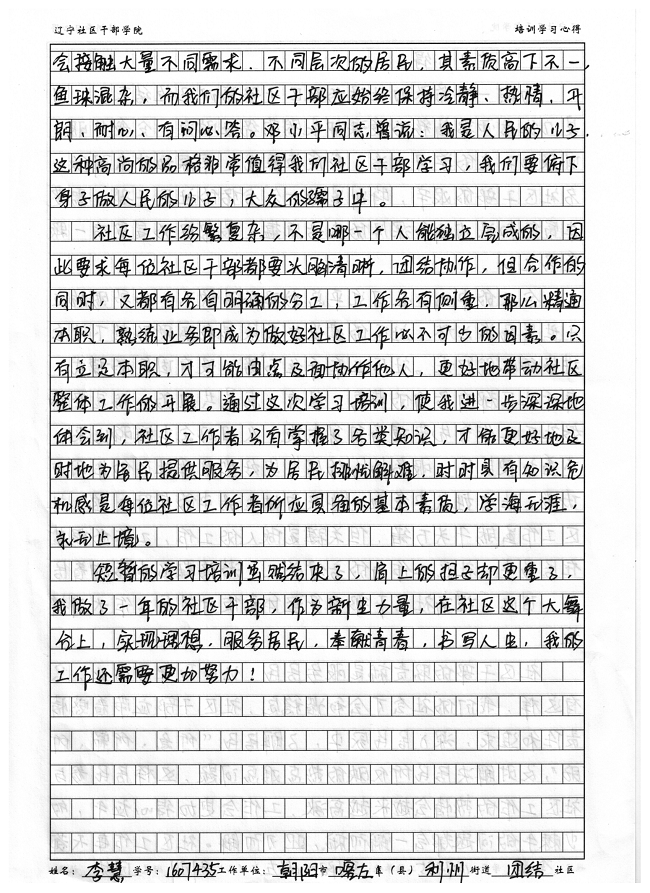 辽宁社区干部学院 培训学习心得
会接触大量不同需求、不同层次的居民，其素质高下不一，
鱼珠混杂，而我们的社区干部应始终保持冷静、热情、开
朗、耐心、有问必答。邓小平同志曾说：我是人民的儿子，
这种高尚的品格非常值得我们社区干部学习，我们要俯下
身子做人民的儿子，大众的孺子牛。
社区工作纷繁复杂，不是哪一个人能独立完成的，因
此要求每位社区干部都要头脑清晰，团结协作，但合作的
同时，又都有各自明确的分工，工作各有侧重，那么精通
本职，熟练业务即成为做好社区工作必不可少的因素。只
有立足本职，才可能由点及面协作他人，更好地带动社区
整体工作的开展。通过这次学习培训，使我进一步深深地
体会到，社区工作者只有掌握了各类知识，才能更好地及
时地为居民提供服务，为居民排忧解难，时时具有知识危
机感是每位社区工作者所应具备的基本素质，学海无涯，
永无止境。
短暂的学习培训虽然结束了，肩上的担子却更重了，
我做了一年的社区干部，作为新生力量，在社区这个大舞
台上，实现理想，服务居民，奉献青春，书写人生，我的
工作还需要更加努力！
姓名：李慧 学号：1607435 工作单位：朝阳市 喀左县（县） 利州街道 团结 社区